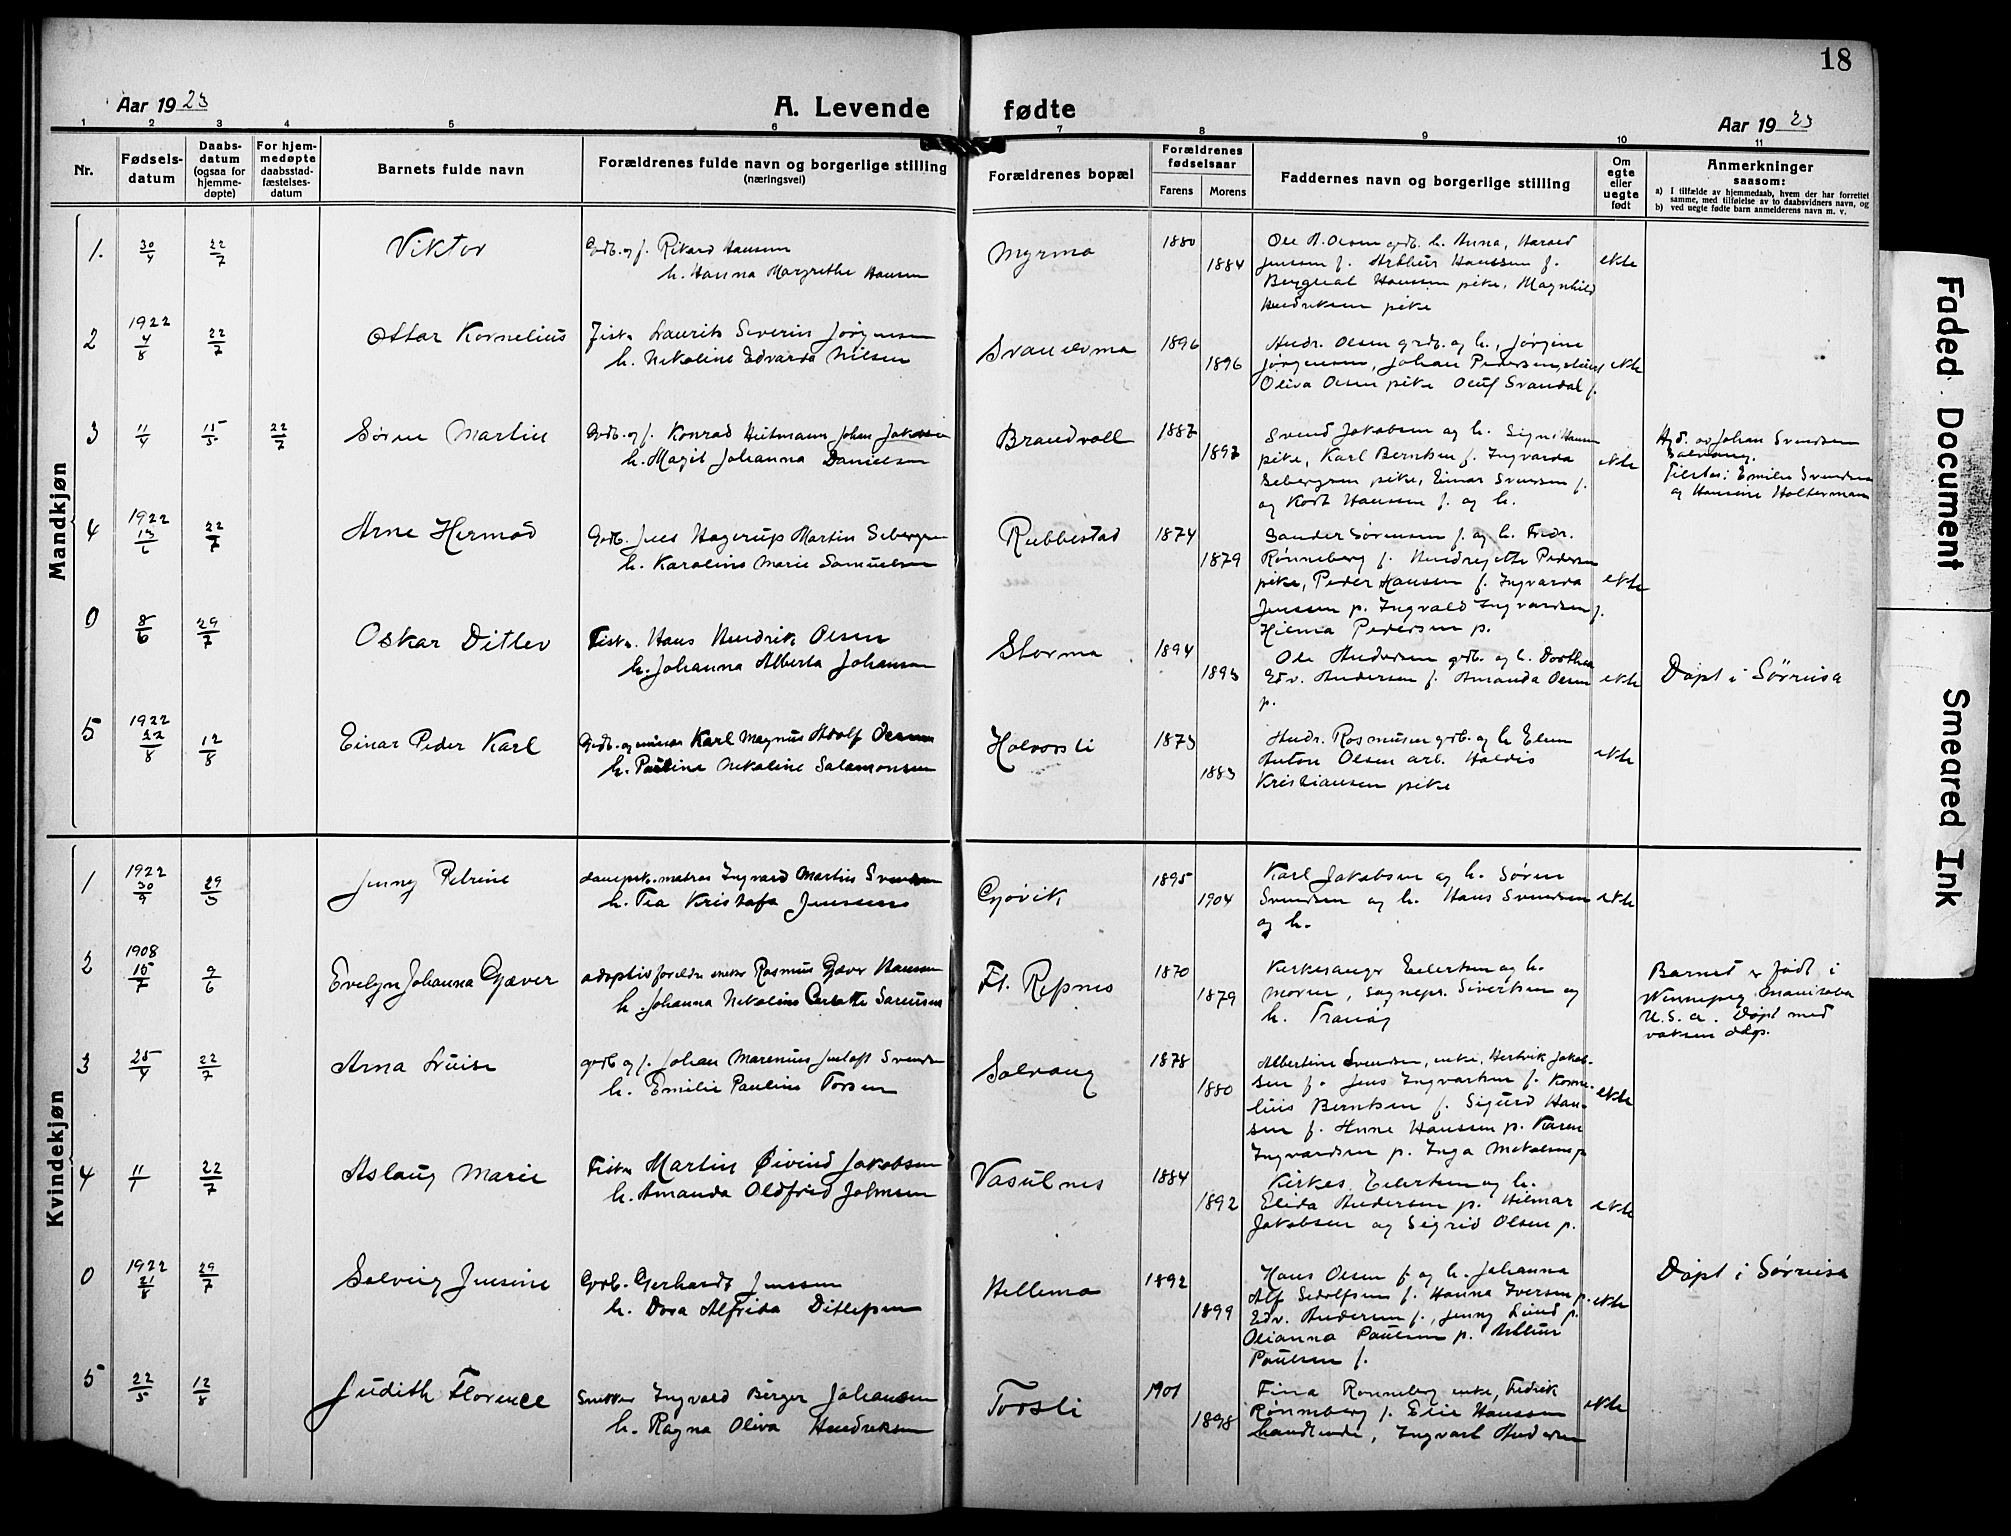 18
Aar 1923
A. Levende fødte
Aar 1923
1 2 3 4 5 6 7 8 9 10 11
Nr.
Fødsels-
datum
Daabs-
datum
(ogsaa for
hjemme-
døpte)
For hjem-
medøpte
daabsstad-
fæstelses-
datum
Barnets fulde navn
Forældrenes fulde navn og borgerlige stilling
(næringsvei)
Forældrenes bopæl
Forældrenes
fødselsaar
Farens
Morens
Faddernes navn og borgerlige stilling
Om
egte
eller
uegte
født
Anmerkninger
saasom:
a) I tilfælde av hjemmedaab, hvem der har forrettet
samme, med tilføielse av to daabsvidners navn, og
b) ved uegte fødte barn anmelderens navn m. v.
Mandkjøn
1. 30/4 22/7 Viktor
Grdb. og f. Rikard Hansen
h. Hanna Margrethe Hansen
Myrmo 1880 1884
Ole A. Olsen grdb. h. Anna, Harald
Jensen f. Arthur Hanssen f.
Hansen pike, Magnhild
Hendriksen pike
ekte
2 1922 4/8 22/7 Ottar Kornelius
Fisk. Laurits Severin Jørgensen
h. Nikoline Edvarda Nilsen
1896 1896
Andr. Olsen grdb. og h., Jørgine
Jørgensen, Johan Pedersen,
Oliva Olsen pike Oluf Svandal f.
ekte
3 11/4 15/5 22/7 Søren Martin
Grdb. og f. Konrad Hitmann Johan Jakobsen
h. Magil Johanna Danielsen
Brandvoll 1887 1897
Svend Jakobsen og h. Signe Hansen
pike, Karl Berntsen f. Ingvarda
Sebergsen pike, Einar Svensen f.
og Kort Hanssen f. og h.
ekte
Hjd. av Johan Svendsen
Solvang.
Tilstede: Emilie Svendsen
og Hansine Holtermann
4 1922 13/6 22/7 Arne Hermod
Grdb. Jens Hagerup Martin Sebergsen
h. Karoline Marie Samuelsen
Rubbestad 1874 1879
Sander Sørensen f. og h. Fredr.
Rønneberg f. Hendrejette Pedersen
pike, Peder Hansen f. Ingvarda
Jenssen p. Ingvald Ingvardsen f.
Hilma Pedersen p.
ekte
0 8/6 29/7 Oskar Ditlev
Fisk. Hans Hendrik Olsen
h. Johanna Alberta Johansen
Stormo 1894 1893
Ole Andersen grdb. og h. Dorthea
Edv. Andersen f. Amanda Olsen
p.
ekte
Døpt i Sørreisa
5 1922 22/8 12/8 Einar Peder Karl
Grdb. og Karl Magnus Adolf Olsen
h. Pauline Nikoline Salamonsen
Holvorsli 1873 1883
Andr. Rasmusen grdb. og h. Elen
Anton Olsen arb. Haldis
Kristiansen pike
ekte
Kvindekjøn
1 1922 30/9 29/5 Jenny Petrine
matros Ingvard Martin Svendsen
h. Tea Kristofa Jenssen
Gjøvik 1895 1904
Karl Jakobsen og h. Søren
Svendsen og h. Hans Svendsen
og h.
ekte
2 1908 15/7 9/6 Evelyn Johanna Gjæver
adoptivforeldre Rasmus Gjæver Hansen
h. Johanna Nikoline Charlotte Sørensen
Fl. Repnes 1870 1879
Kirkesanger Eilertsen og h.
moren, sognepr. Sivertsen og
h. Tranøy
Barnet er født i
Winnepeg Manitoba
U.S.A. Døpt med
voksen daap.
3 25/4 22/7 Arna Luise
grdb og f. Johan Marenius Justoft Svendsen
h. Emilie Pauline Torsen
Solvang 1878 1880
Albertine Svendsen, enke, Hertvik Jakob-
sen f. Jens Ingvartsen f. Korne-
lius Berntsen f. Sigurd Han-
sen f. Anne Hanssen p. Karen
Ingvardsen p. Inga p
ekte
4 11/1 22/7 Aslaug Marie
Fisk. Martin Øivind Jakobsen
h. Amanda Oldfrid Johnsen
Vasulnes 1884 1892
Kirkes. Eilertsen og h.
Elida Andersen p. Hilmar
Jakobsen og Sigrid Olsen p.
ekte
0 1922 21/8 29/7 Solveig Jensine
Grdb. Gerhardt Jenssen
h. Dora Alfrida Ditlefsen
Hellemo 1892 1899
Hans Olsen f. og h. Johanna
Alf Sedolfsen f. Hanna Iversen p.
Edv. Andersen f., Jenny Lund p.
Olianna Paulsen p. Arthur
Paulsen f.
ekte
Døpt i Sørreisa
5 22/5 12/8 Judith Florence
Snekker Ingvald Berger Johansen
h. Ragna Oliva Hendriksen
Torsli 1901 1898
Fina Rønneberg enke, Fredrik
Rønneberg f. Elie Hanssen
handlende, Ingvart Andersen
ekte
Faded Document
Smeared Ink